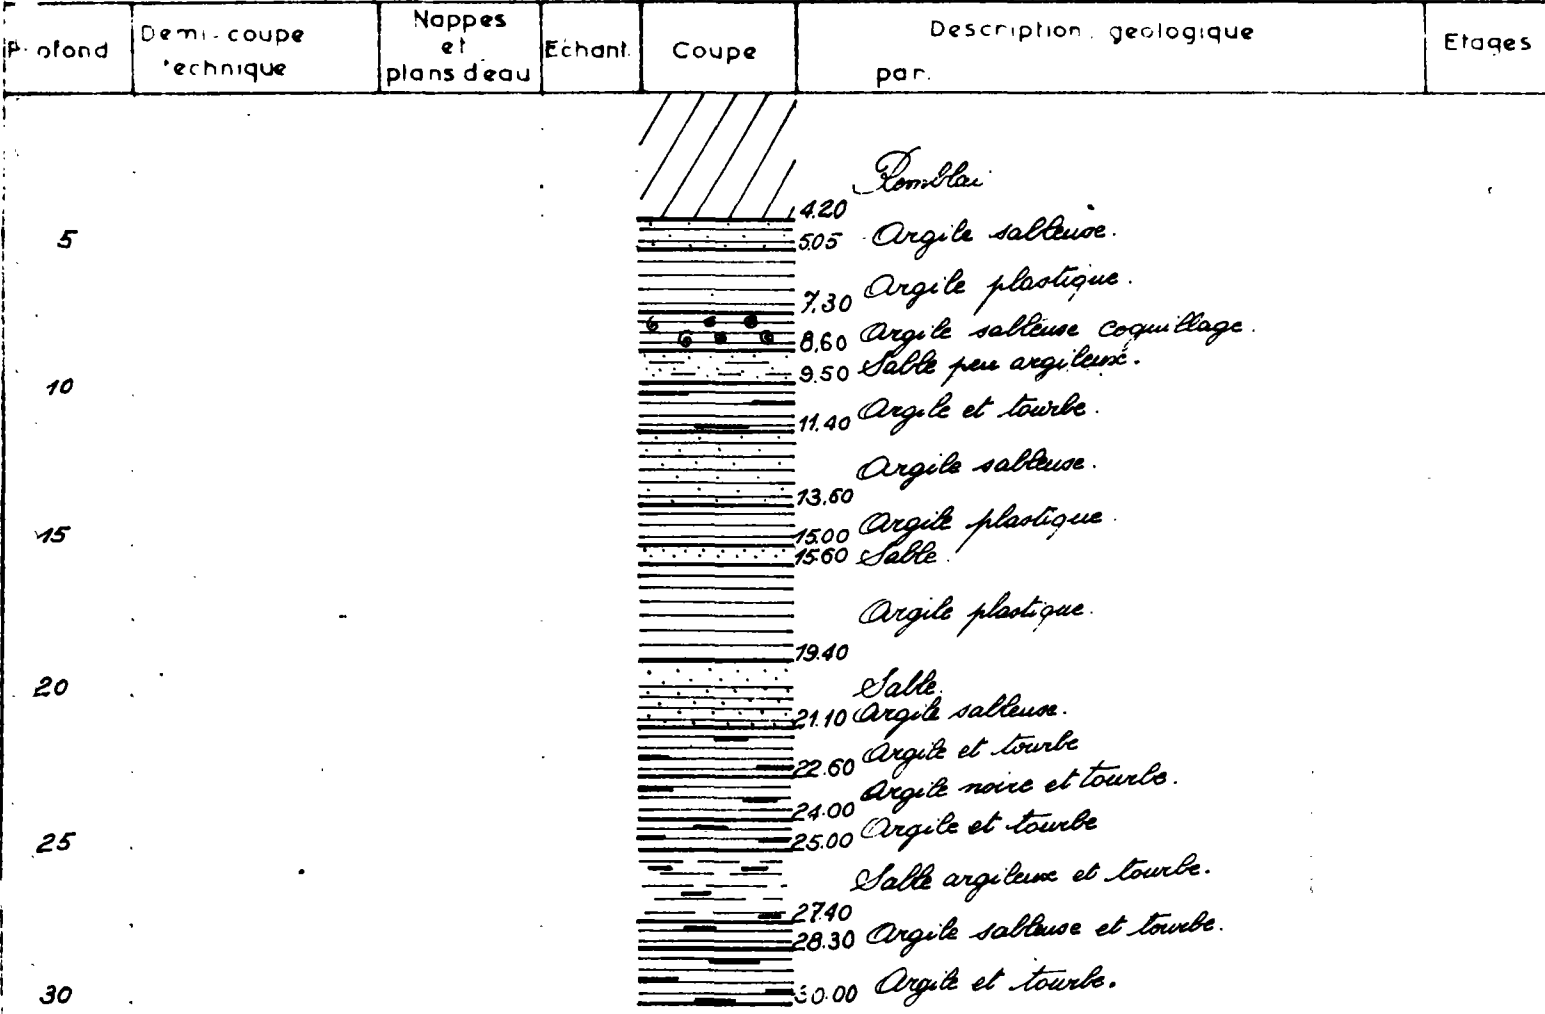 Profond
Demi-coupe
technique
Nappes
et
plans d'eau
Echant.
Coupe
Description géologique
par.
Etages
Remblai
4.20
5
5.05 Argile sableuse.
Argile plastique.
7.30
8.60 Argile sableuse coquillage.
9.50 Sable peu argileux.
10
11.40 Argile et tourbe.
Argile sableuse.
13.60
Argile plastique.
15
15.00
15.60 Sable.
Argile plastique.
19.40
20
Sable.
21.10 Argile sableuse.
22.60 Argile et tourbe
Argile noire et tourbe.
24.00
25
25.00 Argile et tourbe
Sable argileux et tourbe.
27.40
28.30 Argile sableuse et tourbe.
30
30.00 Argile et tourbe.